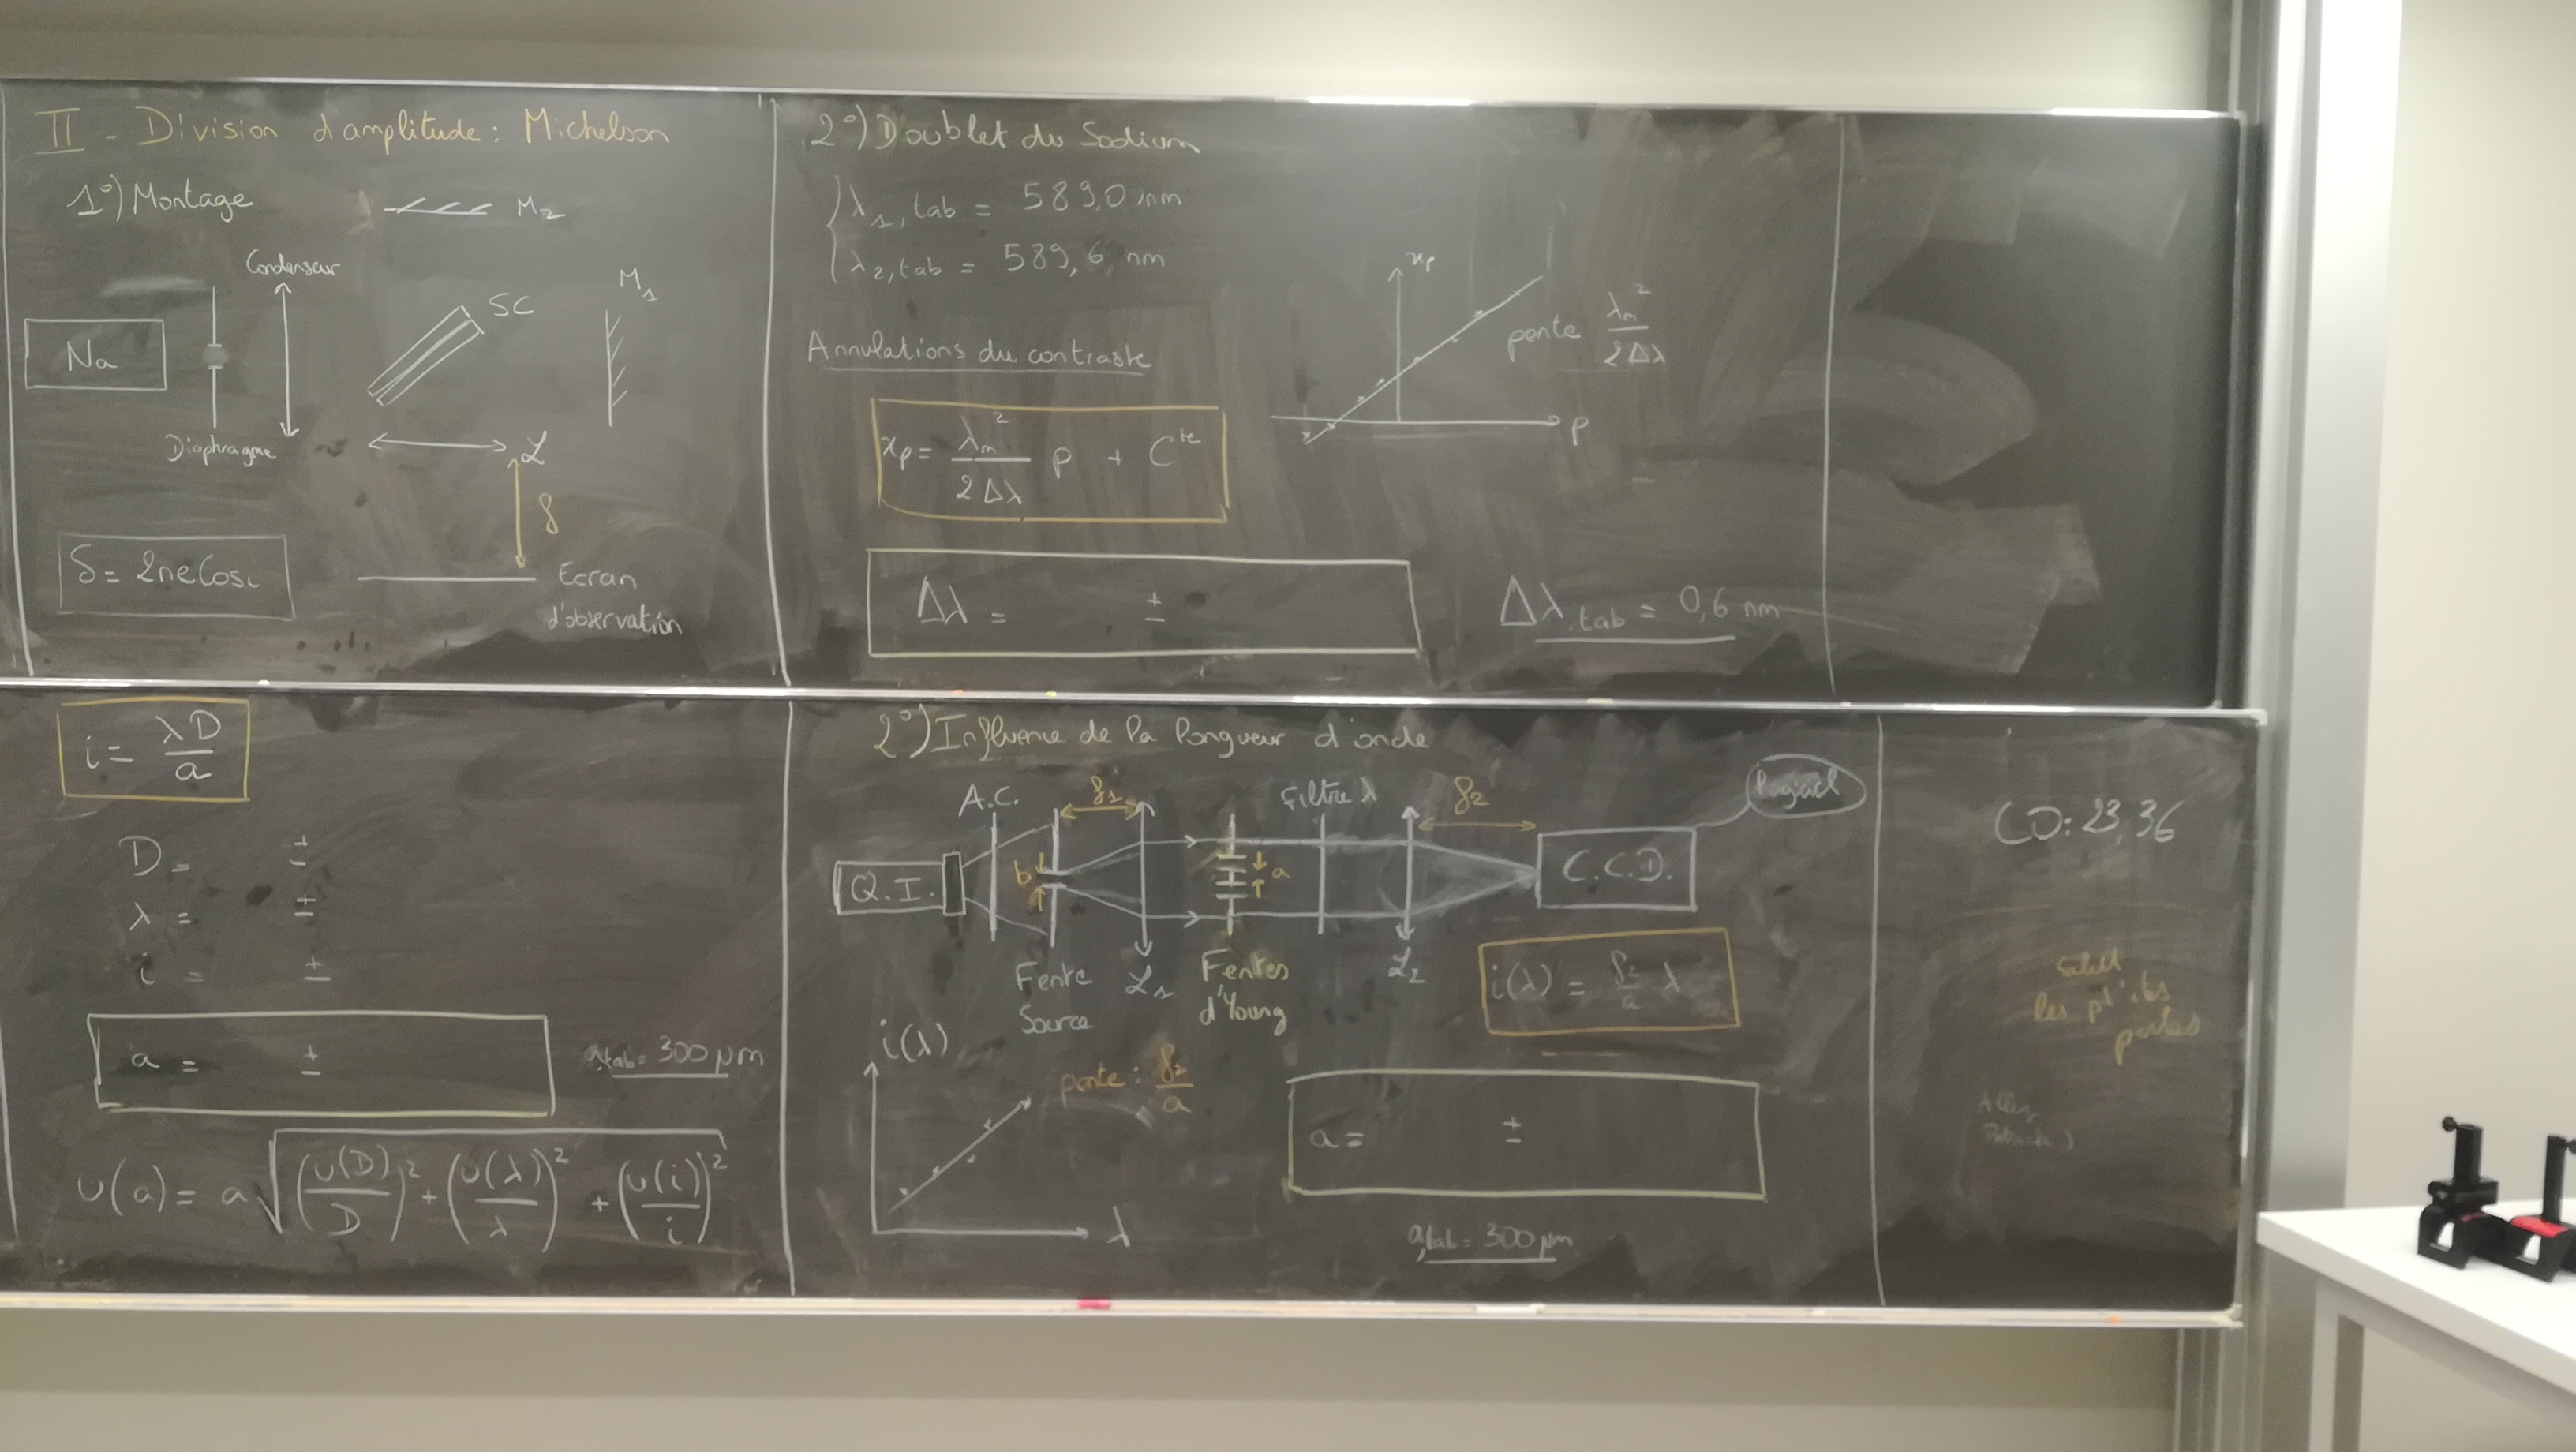 II - Division d'amplitude : Michelson
1°) Montage
M2
Condenseur
M1
SC
Na
Diaphragme
L
f
δ = 2ne cos i
Ecran
d'observation
2°) Doublet du Sodium
λ1,tab = 589,0 nm
λ2,tab = 589,6 nm
Annulations du contraste
xp = λm² / 2Δλ p + Cte
xp
pente λm² / 2Δλ
p
Δλ = ±
Δλ,tab = 0,6 nm
i = λD / a
D = ±
λ = ±
i = ±
a = ±
a,tab = 300 µm
u(a) = a √((u(D)/D)² + (u(λ)/λ)² + (u(i)/i)²)
2°) Influence de la longueur d'onde
logiciel
A.C.
f1
Filtre λ
f2
Q.I.
b
a
C.C.D.
Fente
Source
L1
Fentes
d'Young
L2
i(λ) = f2/a λ
i(λ)
pente : f2/a
λ
a = ±
a,tab = 300 µm
CO: 23,36
les pt'its